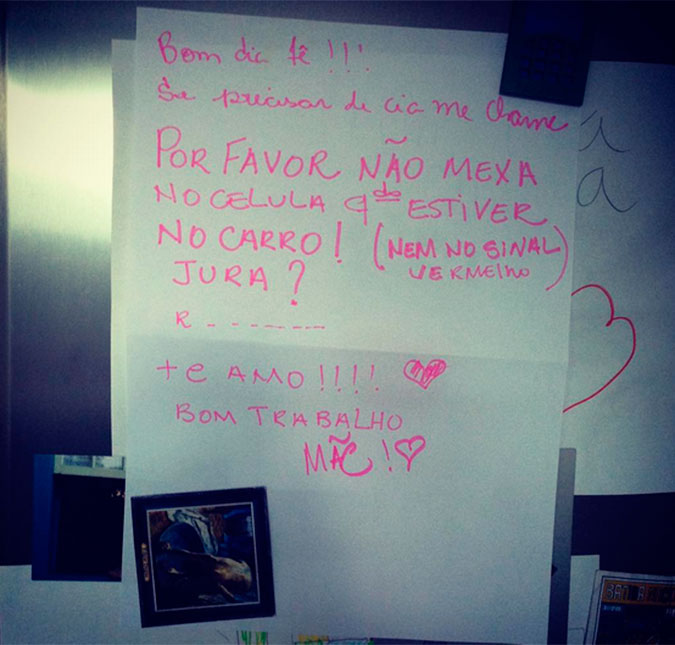 Bom dia fê !!!
Se precisar de cia me chame
POR FAVOR NÃO MEXA
NO CELULA qdo ESTIVER
NO CARRO! (NEM NO SINAL
VERMELHO)
JURA?
R - - - - - - -
te AMO!!!! ♥
BOM TRABALHO
MÃE! ♡